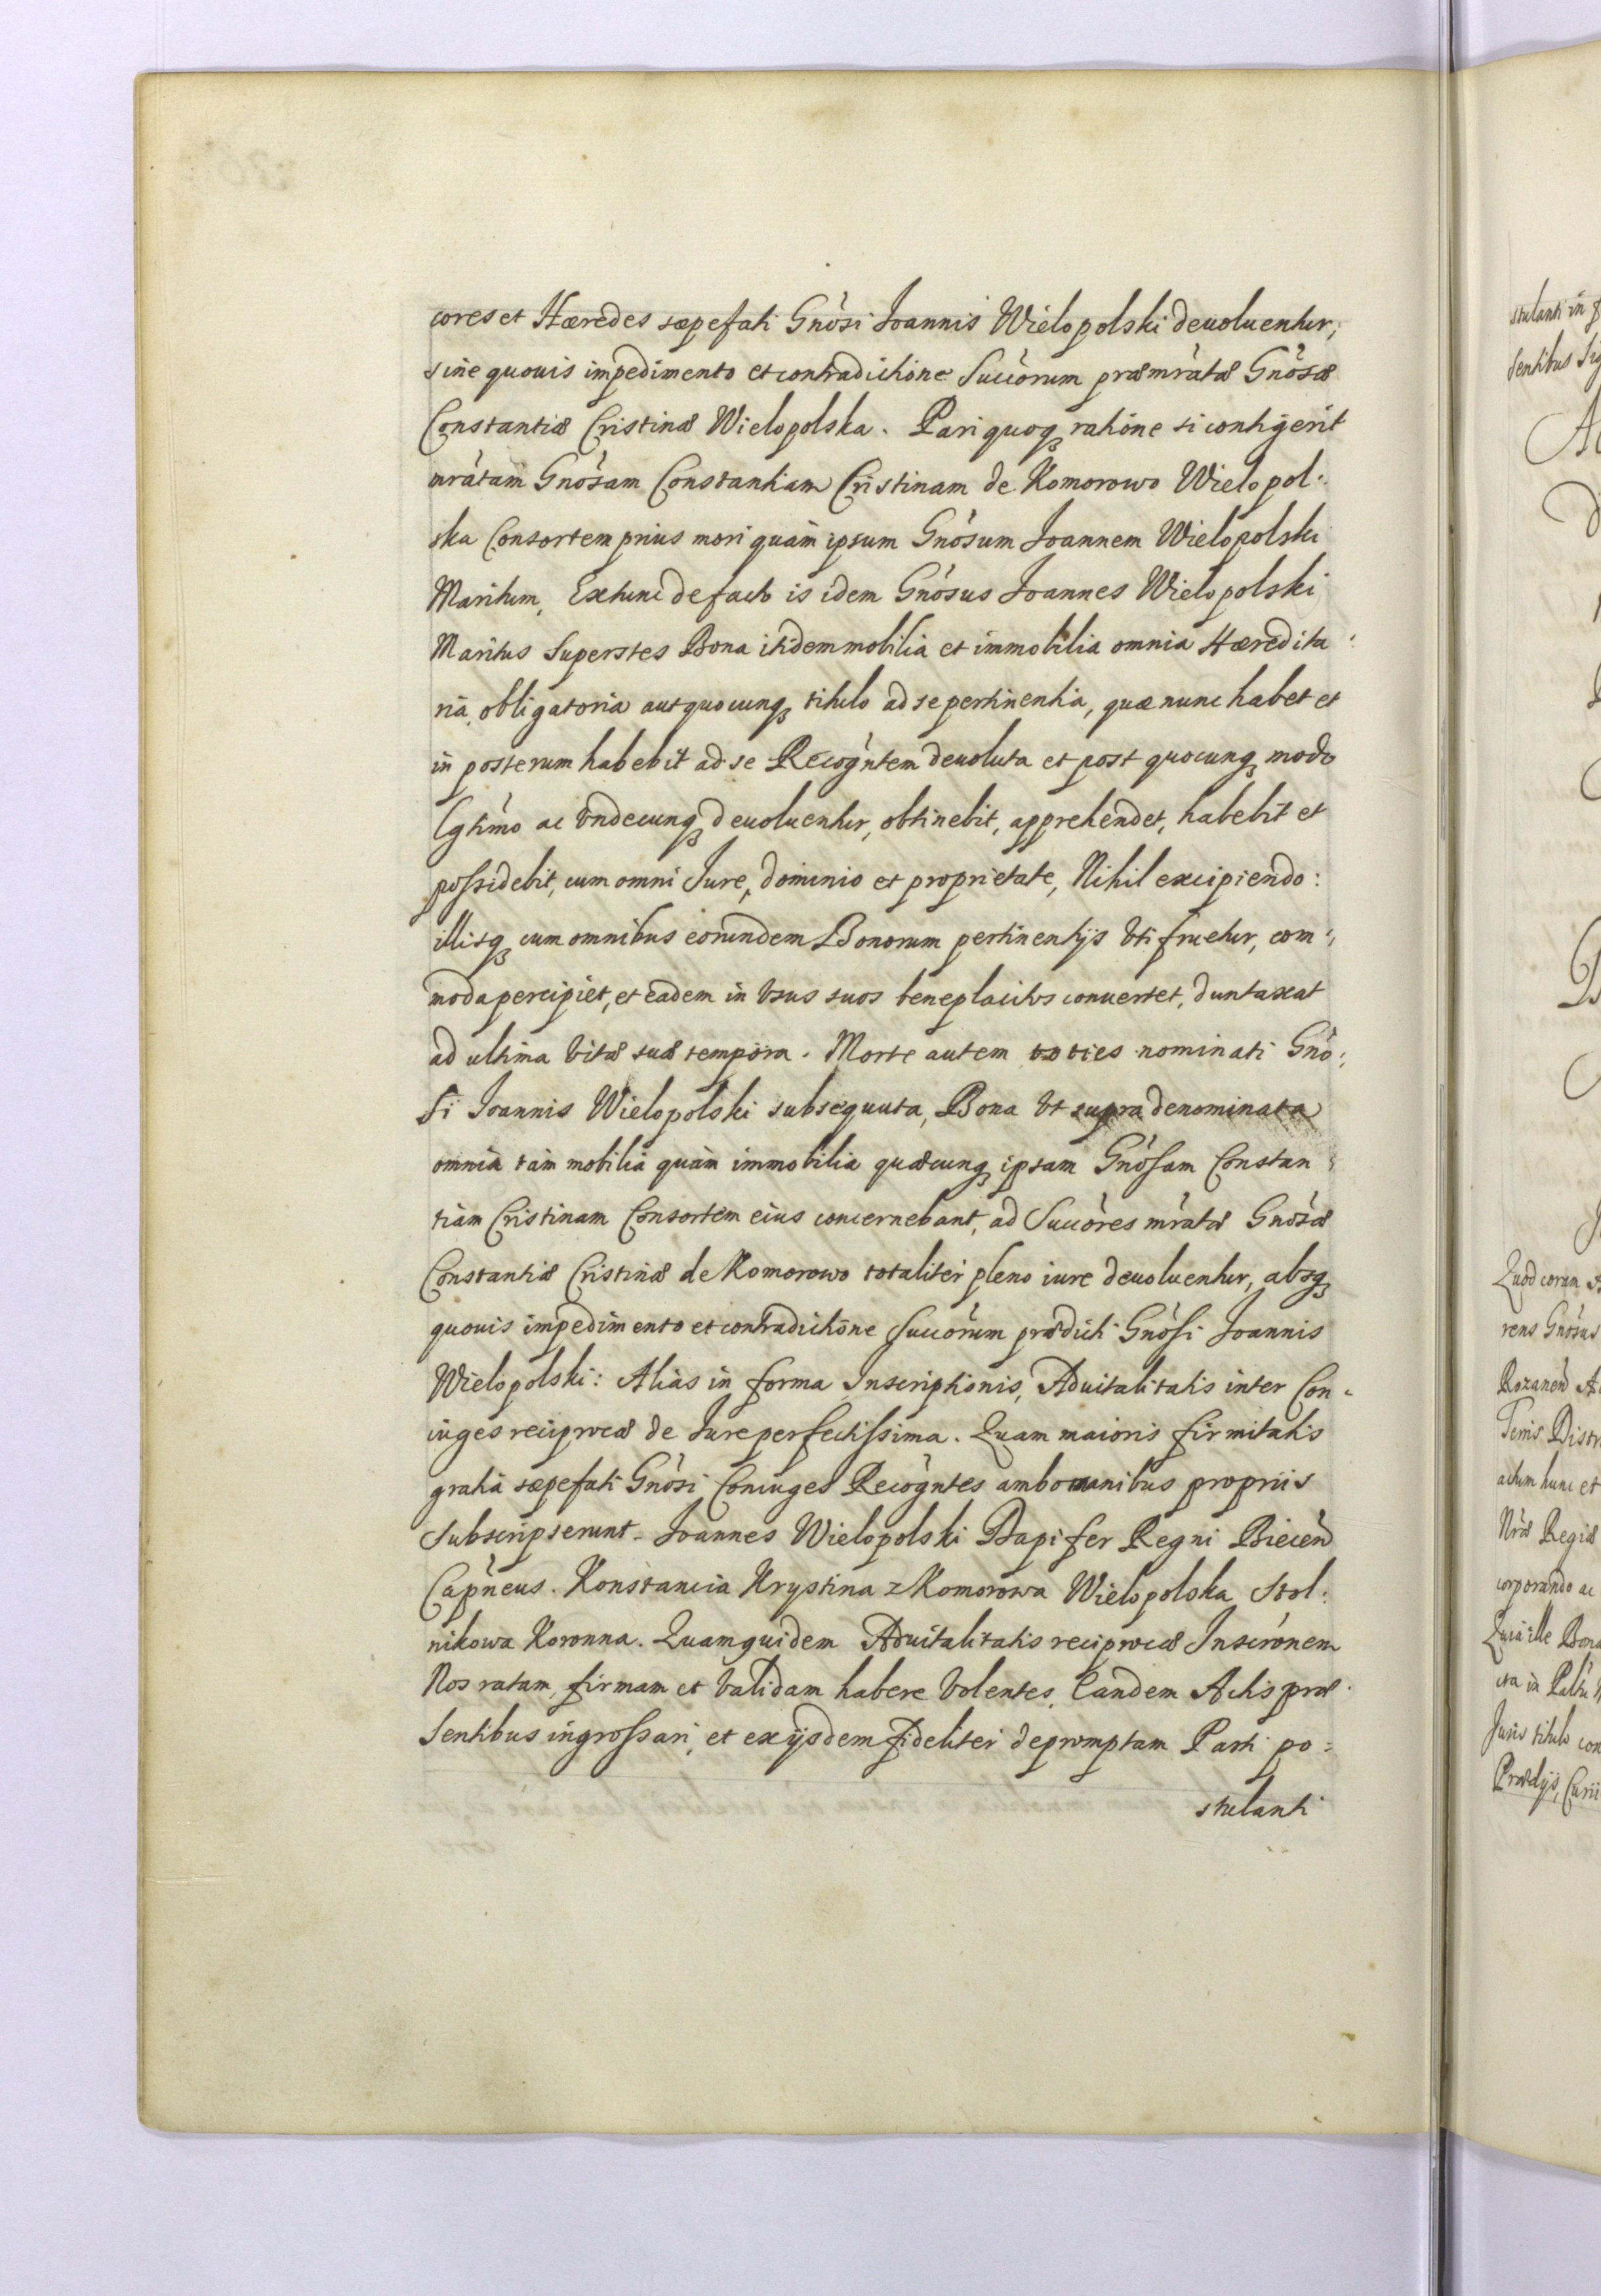 cores et Hæredes sæpefati Gnòsi Joannis Wielopolski deuoluentur,
sine quouis impedimento et contradictione Succòrum præmràtæ Gnòsæ
Constantiæ Cristinæ Wielopolska. Pari quoqꝫ ratiòne si contigerit
mràtam Gnòsam Constantiam Cristinam de Komorowo Wielopol:
ska Consortem prius mori quàm ipsum Gnòsum Joannem Wielopolski
Maritum, Extunc de facto is idem Gnòsus Joannes Wielopolski
Maritus Superstes Bona itidem mobilia et immobilia omnia Hæredita:
ria, obligatoria aut quocunqꝫ titulo ad se pertinentia, quæ nunc habet et
in posterum habebit ad se Recògntem deuoluta et post quocunqꝫ modo
Lgtimò ac vndecunqꝫ deuoluentur, obtinebit, apprehendet, habebit et
possidebit, cum omni Jure, dominio et proprietate, Nihil excipiendo:
illisqꝫ cum omnibus eorundem Bonorum pertinentijs vti fruetur, com:
moda percipiet, et eadem in vsus suos beneplacitos conuertet, duntaxat
ad ultima vitæ suæ tempora. Morte autem toties nominati Gnò:
si Joannis Wielopolski subsequuta, Bona vt supra denominata
omnia tàm mobilia quàm immobilia quæcunqꝫ ipsam Gnòsam Constan:
tiam Cristinam Consortem eius concernebant, ad Succòres mràtæ Gnòsæ
Constantiæ Cristinæ de Komorowo totaliter pleno iure deuoluentur, absqꝫ
quouis impedimento et contradictiòne Succòrum prædicti Gnòsi Joannis
Wielopolski: Aliàs in forma Inscriptionis, Aduitalitatis inter Con:
iuges reciprocæ de Jure perfectissima. Quam maioris firmitatis
gratia sæpefati Gnòsi Coniuges Recògntes ambo manibus propriis
Subscripserunt. Joannes Wielopolski Dapifer Regni Biecèn
Capneus. Konstancia Krystina z Komorowa Wielopolska Stol:
nikowa Koronna. Quamquidem Aduitalitatis reciprocæ Inscrònem
Nos ratam, firmam et validam habere volentes, Eandem Actis præ:
sentibus ingrossari, et ex ijsdem fideliter depromptam Parti po:
stulanti
stulanti in
sentibus Sig
Quod coram
rens Gnòsus
Rozanèn
Terris Distr
actum hunc et
Nrǽ Regiæ
corporando ac
Quia ille Bona
Juris titulo con
Prædijs, Curii